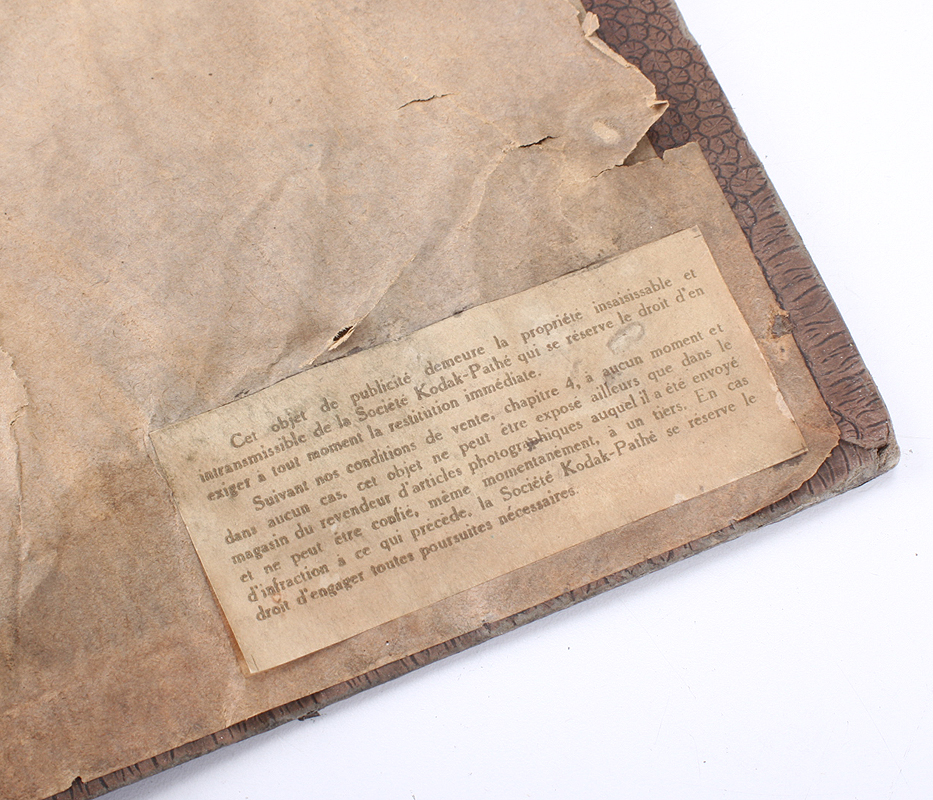 Cet objet de publicité demeure la propriété insaisissable et
intransmissible de la Société Kodak-Pathé qui se réserve le droit d'en
exiger à tout moment la restitution immédiate.
Suivant nos conditions de vente, chapitre 4, à aucun moment et
dans aucun cas, cet objet ne peut être exposé ailleurs que dans le
magasin du revendeur d'articles photographiques auquel il a été envoyé
et ne peut être confié, même momentanément, à un tiers. En cas
d'infraction à ce qui précède, la Société Kodak-Pathé se réserve le
droit d'engager toutes poursuites nécessaires.